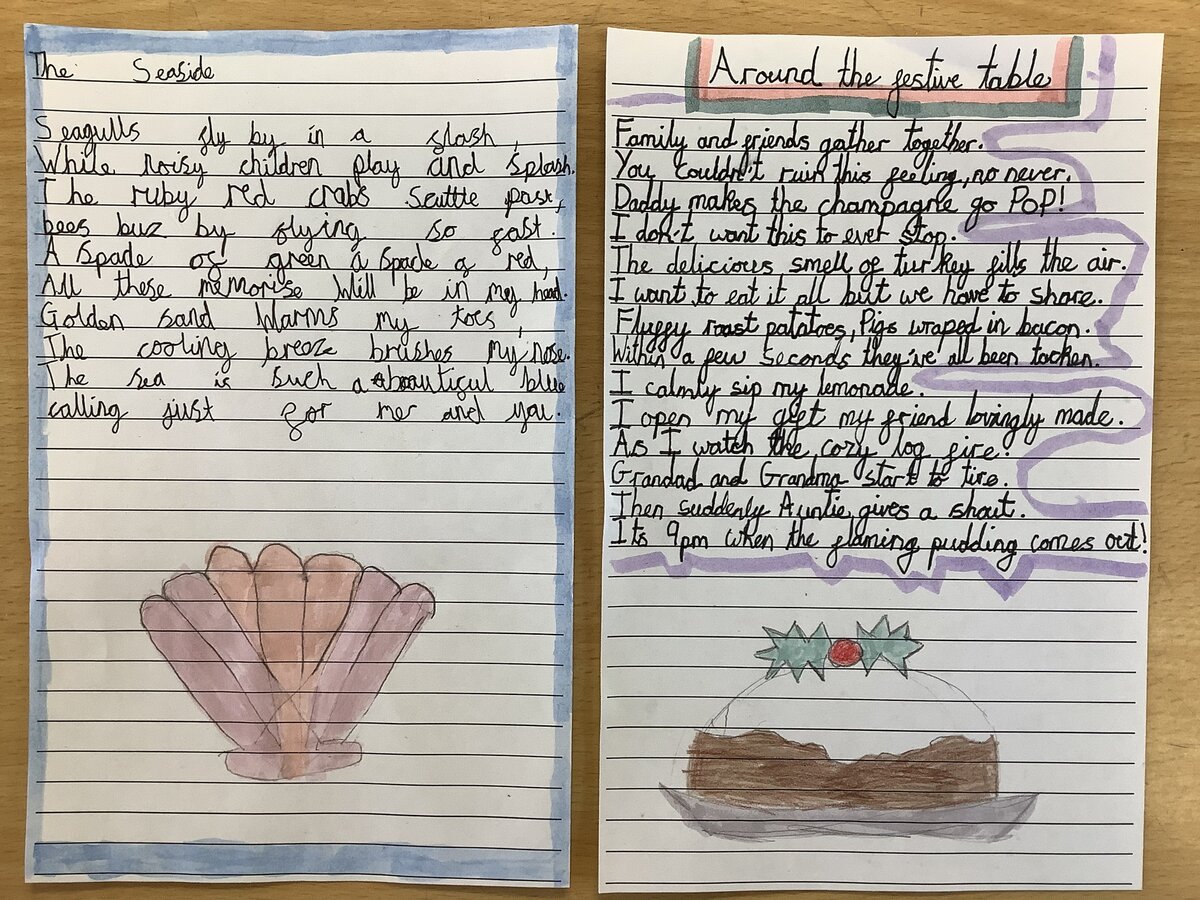 The Seaside
Seagulls fly by in a flash,
While noisy children play and splash.
The ruby red crabs scuttle past,
bees buz by flying so fast.
A spade of green a spade of red,
All these memorise Will be in my head.
Golden sand Warms my toes,
The cooling breeze brushes my nose.
The sea is such a beautiful blue
calling just for mer and you.
Around the festive table
Family and friends gather together.
You couldn't ruin this feeling, no never.
Daddy makes the champagne go POP!
I don't want this to ever stop.
The delicious smell of turkey fills the air.
I want to eat it all but we have to share.
Fluffy roast patatoes, Pigs wraped in bacon.
Within a few seconds they've all been tacken.
I calmly sip my lemonade.
I open my gift my friend lovingly made.
As I watch the cozy log fire.
Grandad and Grandma start to tire.
Then suddenly Auntie gives a shout.
Its 9pm when the flaming pudding comes out!